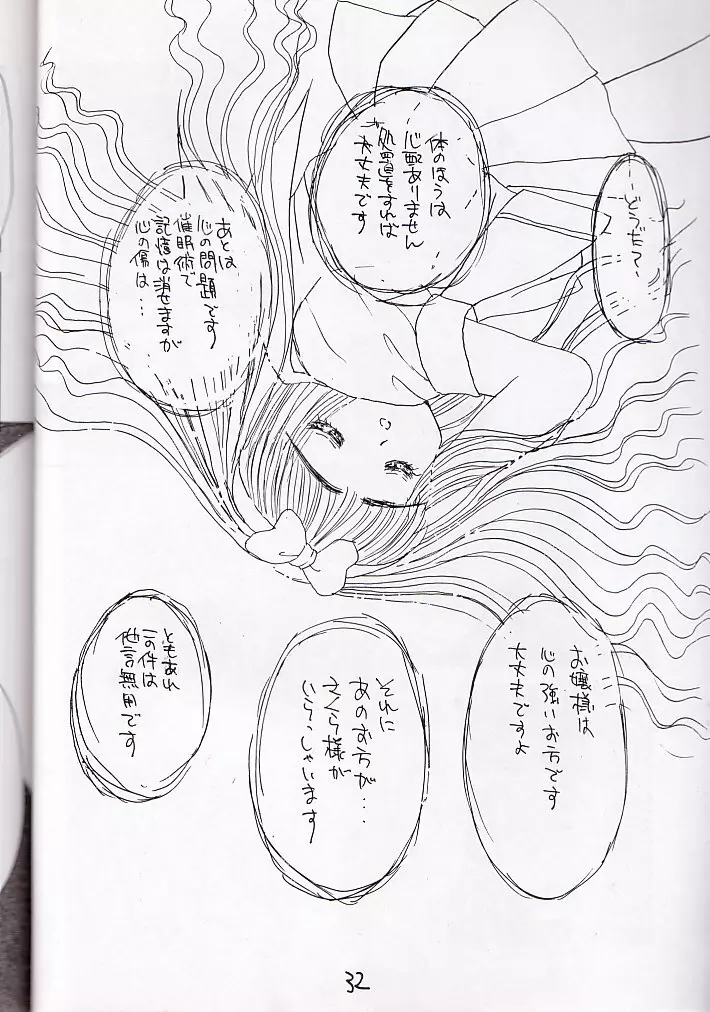 …どうだ?
体のほうは
心配ありません
処置をすれば
大丈夫です
あとは
心の問題です
催眠術で
記憶は消せますが
心の傷は…
お嬢様は
心の強いお方です
大丈夫ですよ
それに
あのお方が…
さくら様が
いらっしゃいます
ともあれ
この件は
他言無用です
32